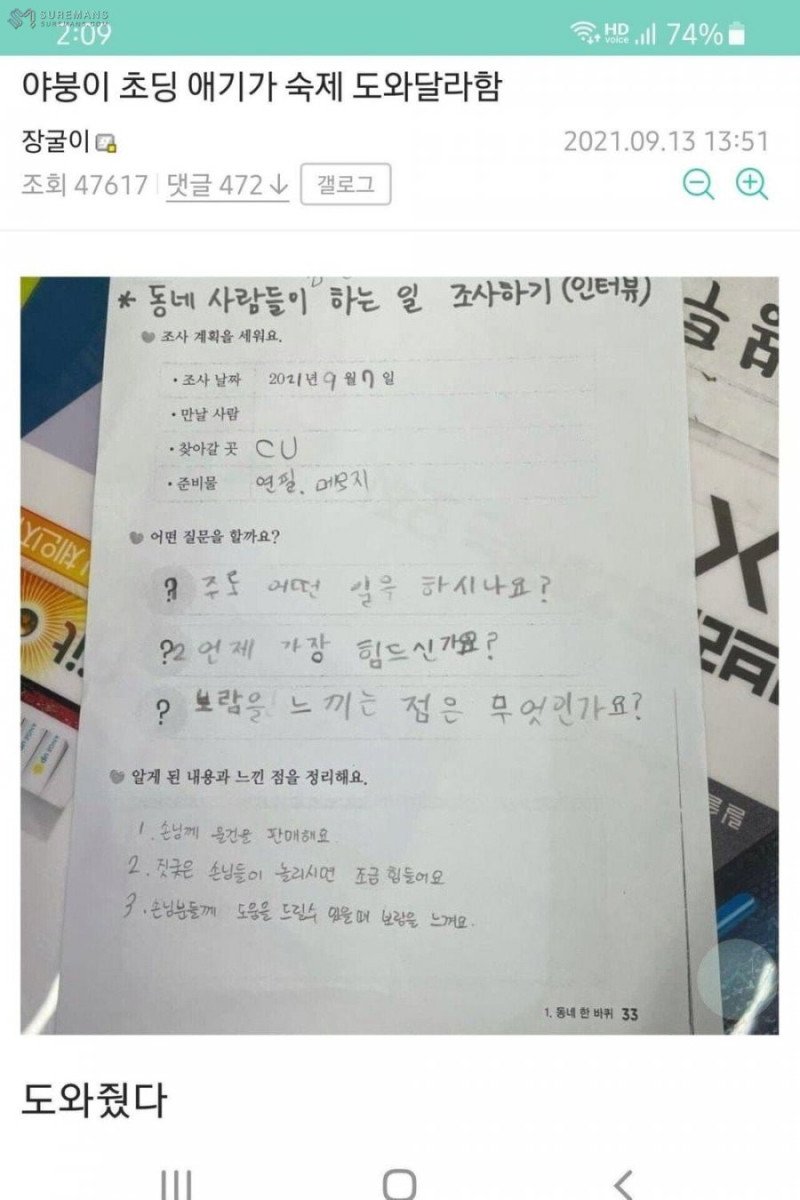 SUREMANS
SUREMANS.COM
2:09 HD voice 74%
야붕이 초딩 애기가 숙제 도와달라함
장굴이 2021.09.13 13:51
조회 47617 댓글 472 갤로그
* 동네 사람들이 하는 일 조사하기 (인터뷰)
조사 계획을 세워요.
• 조사 날짜 2021년 9월 7일
• 만날 사람
• 찾아갈 곳 CU
• 준비물 연필, 메모지
어떤 질문을 할까요?
? 주로 어떤 일을 하시나요?
?2 언제 가장 힘드신가요?
? 보람을 느끼는 점은 무엇인가요?
알게 된 내용과 느낀 점을 정리해요.
1. 손님께 물건을 판매해요.
2. 짓궂은 손님들이 놀리시면 조금 힘들어요
3. 손님분들께 도움을 드릴수 있을때 보람을 느껴요.
1. 동네 한 바퀴 33
도와줬다